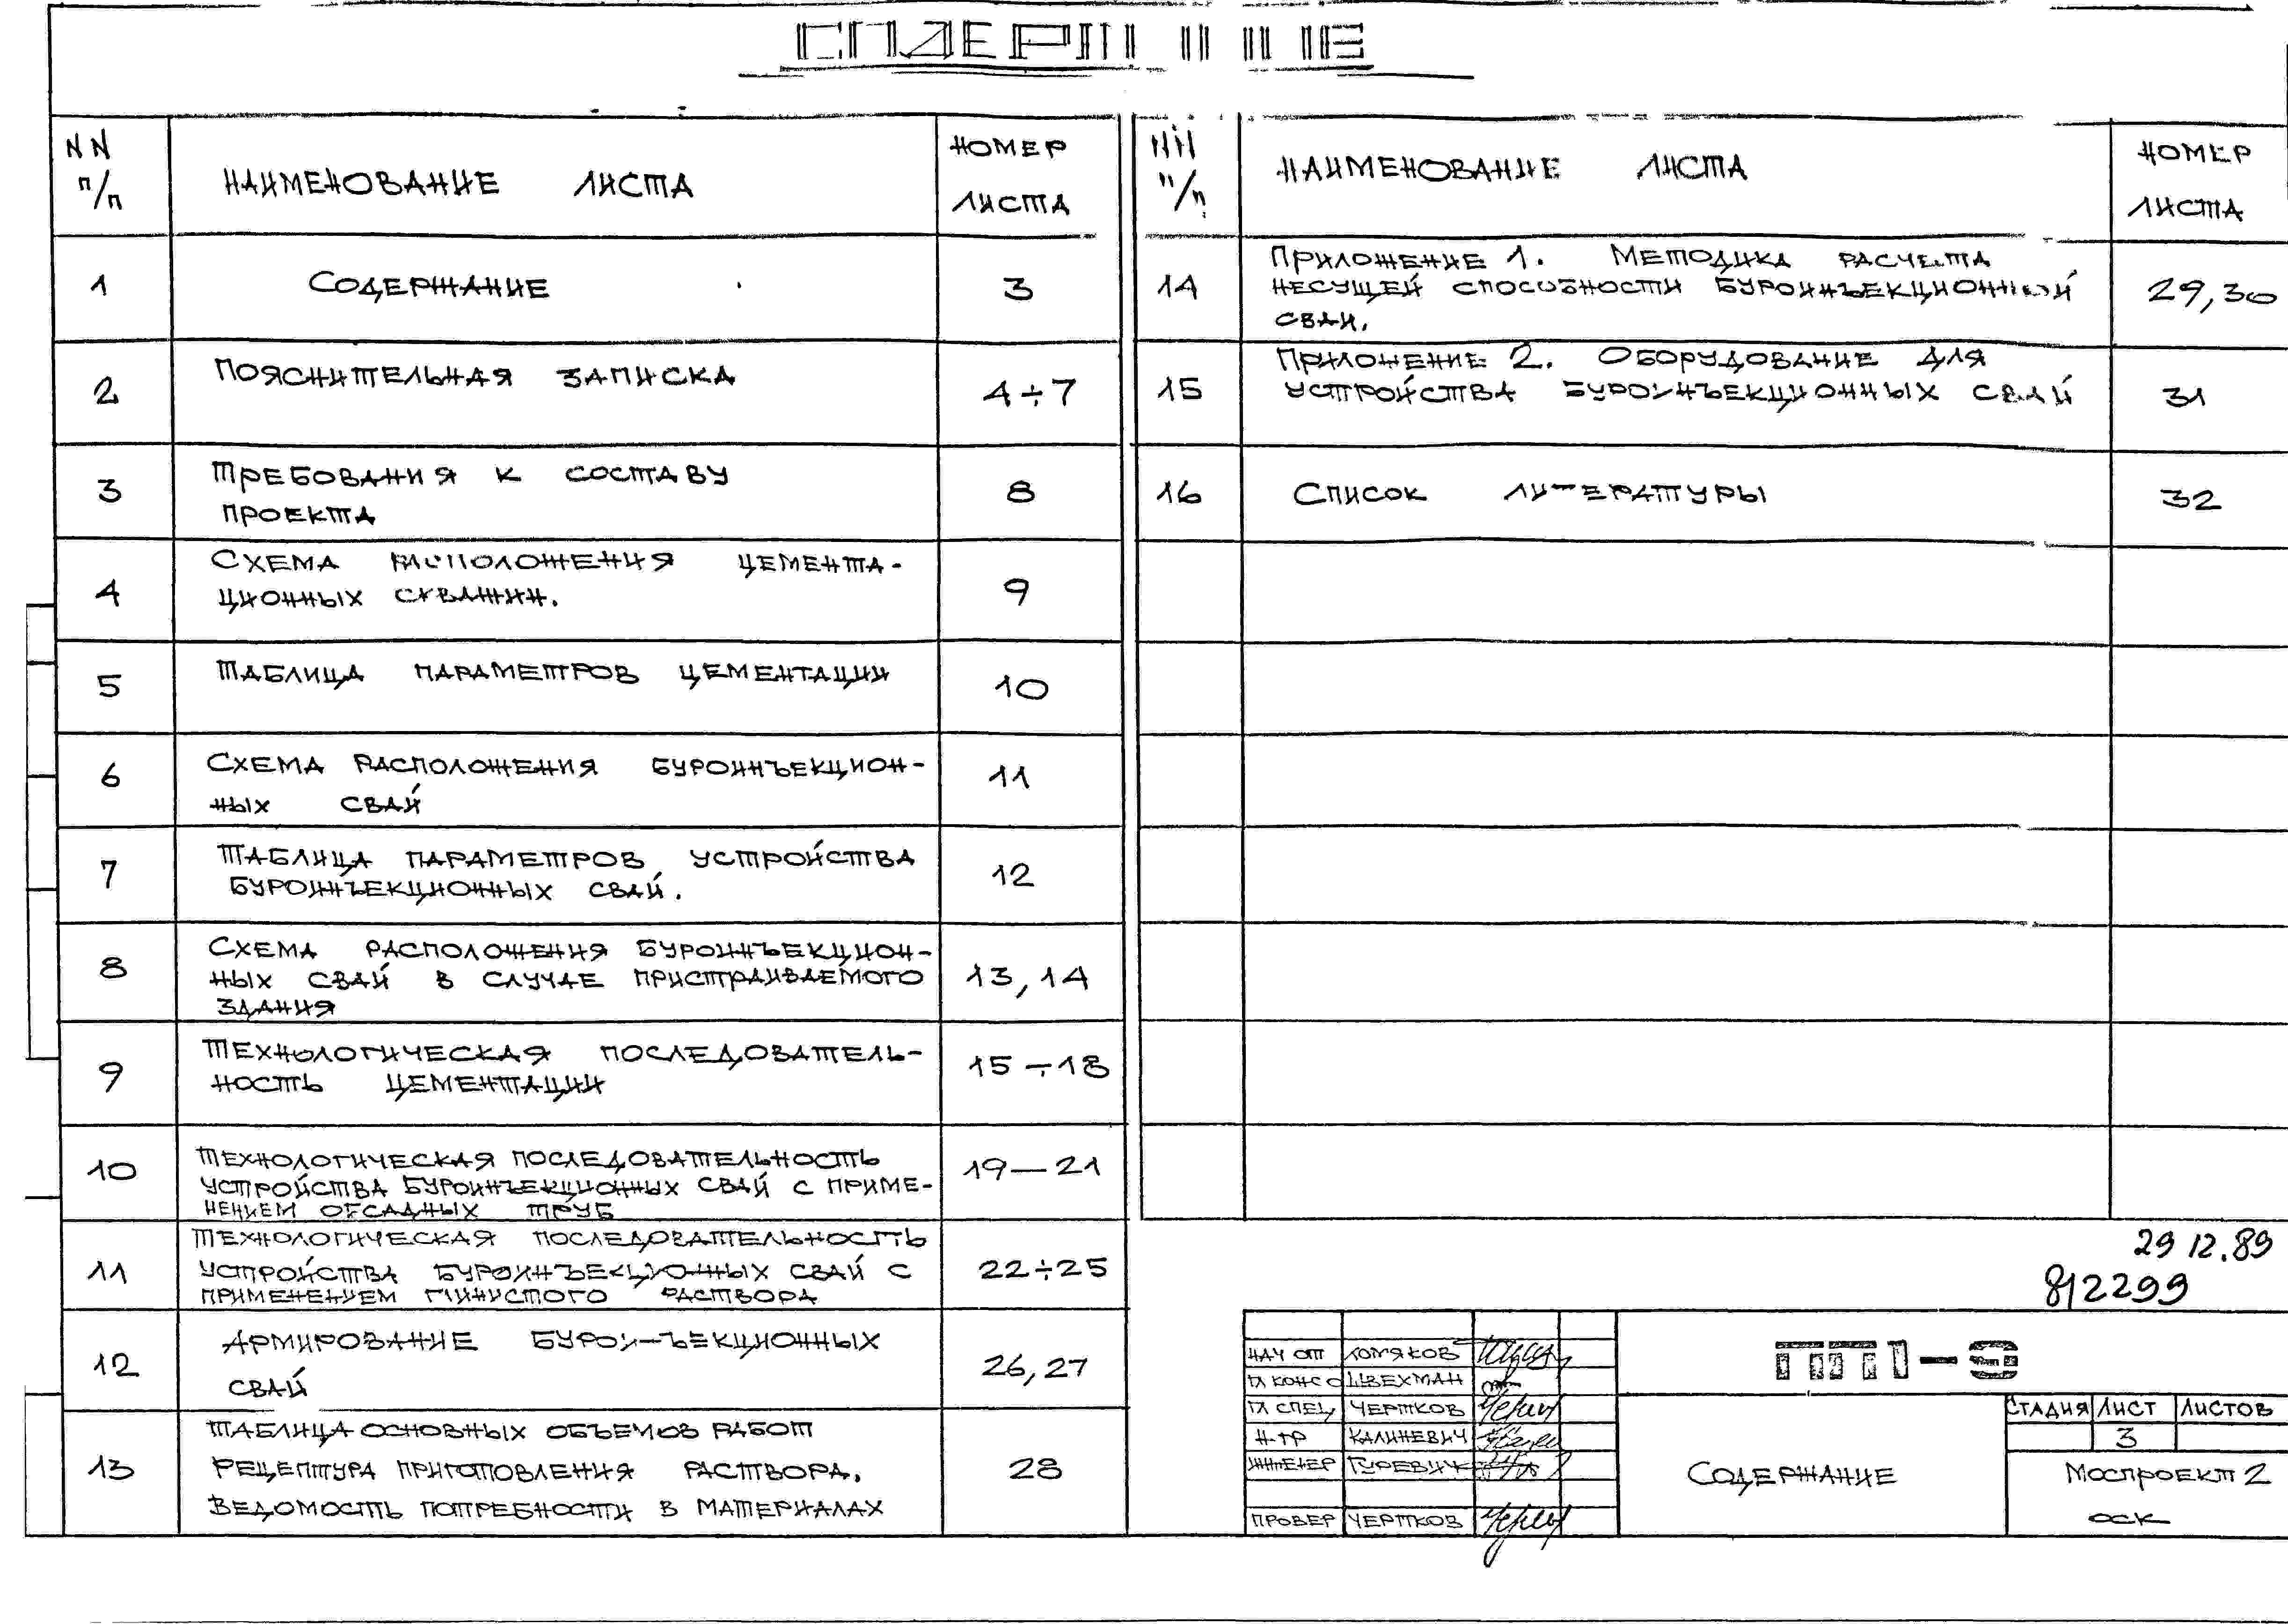 СОДЕРЖАНИЕ
NN п/п
НАИМЕНОВАНИЕ ЛИСТА
НОМЕР ЛИСТА
1
СОДЕРЖАНИЕ
3
2
ПОЯСНИТЕЛЬНАЯ ЗАПИСКА
4÷7
3
ТРЕБОВАНИЯ К СОСТАВУ
ПРОЕКТА
8
4
СХЕМА РАСПОЛОЖЕНИЯ ЦЕМЕНТА-
ЦИОННЫХ СКВАЖИН.
9
5
ТАБЛИЦА ПАРАМЕТРОВ ЦЕМЕНТАЦИИ
10
6
СХЕМА РАСПОЛОЖЕНИЯ БУРОИНЪЕКЦИОН-
НЫХ СВАЙ
11
7
ТАБЛИЦА ПАРАМЕТРОВ УСТРОЙСТВА
БУРОИНЪЕКЦИОННЫХ СВАЙ.
12
8
СХЕМА РАСПОЛОЖЕНИЯ БУРОИНЪЕКЦИОН-
НЫХ СВАЙ В СЛУЧАЕ ПРИСТРАИВАЕМОГО
ЗДАНИЯ
13, 14
9
ТЕХНОЛОГИЧЕСКАЯ ПОСЛЕДОВАТЕЛЬ-
НОСТЬ ЦЕМЕНТАЦИИ
15÷18
10
ТЕХНОЛОГИЧЕСКАЯ ПОСЛЕДОВАТЕЛЬНОСТЬ
УСТРОЙСТВА БУРОИНЪЕКЦИОННЫХ СВАЙ С ПРИМЕ-
НЕНИЕМ ОБСАДНЫХ ТРУБ
19—21
11
ТЕХНОЛОГИЧЕСКАЯ ПОСЛЕДОВАТЕЛЬНОСТЬ
УСТРОЙСТВА БУРОИНЪЕКЦИОННЫХ СВАЙ С
ПРИМЕНЕНИЕМ ГЛИНИСТОГО РАСТВОРА
22÷25
12
АРМИРОВАНИЕ БУРОИНЪЕКЦИОННЫХ
СВАЙ
26, 27
13
ТАБЛИЦА ОСНОВНЫХ ОБЪЕМОВ РАБОТ
РЕЦЕПТУРА ПРИГОТОВЛЕНИЯ РАСТВОРА.
ВЕДОМОСТЬ ПОТРЕБНОСТИ В МАТЕРИАЛАХ
28
NN п/п
НАИМЕНОВАНИЕ ЛИСТА
НОМЕР ЛИСТА
14
ПРИЛОЖЕНИЕ 1. МЕТОДИКА РАСЧЕТА
НЕСУЩЕЙ СПОСОБНОСТИ БУРОИНЪЕКЦИОННОЙ
СВАИ.
29, 30
15
ПРИЛОЖЕНИЕ 2. ОБОРУДОВАНИЕ ДЛЯ
УСТРОЙСТВА БУРОИНЪЕКЦИОННЫХ СВАЙ
31
16
СПИСОК ЛИТЕРАТУРЫ
32
29 12.89
812299
НАЧ ОТ ХОМЯКОВ
ГЛ КОНСО ШВЕХМАН
ГЛ СПЕЦ ЧЕРТКОВ
КАЛИНЕВИЧ
ИНЖЕНЕР ГУРЕВИЧ
ПРОВЕР ЧЕРТКОВ
ПП1-9
СОДЕРЖАНИЕ
СТАДИЯ ЛИСТ ЛИСТОВ
3
МОСПРОЕКТ 2
ОСК